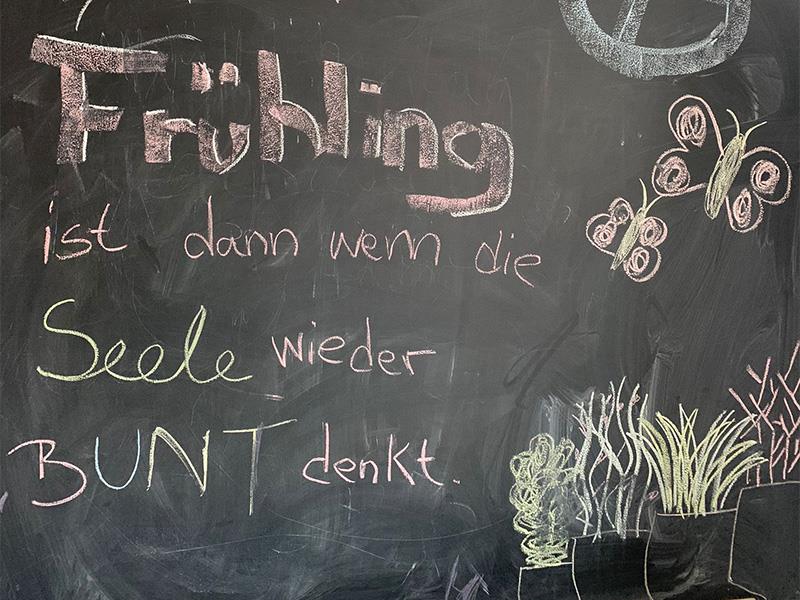 Frühling
ist dann wenn die
Seele wieder
BUNT denkt.